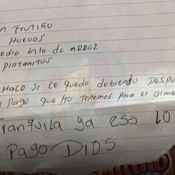 n frutiño
Huevos
edio kilo de arroz
Platanitos
Malo si le quedo debiendo despu
pago que no tenemos para el alime
ranquila ya eso lo
Pago DIOS